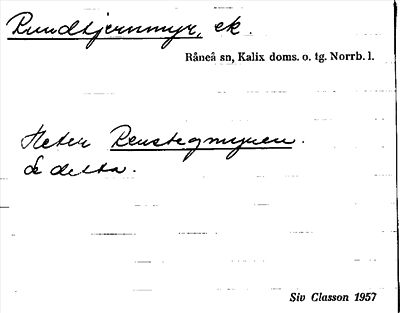 Rundtjernmyr, ek.
Råneå sn, Kalix doms. o. tg. Norrb. l.
Heter Renstegmyren.
Se detta.
Siv Classon 1957